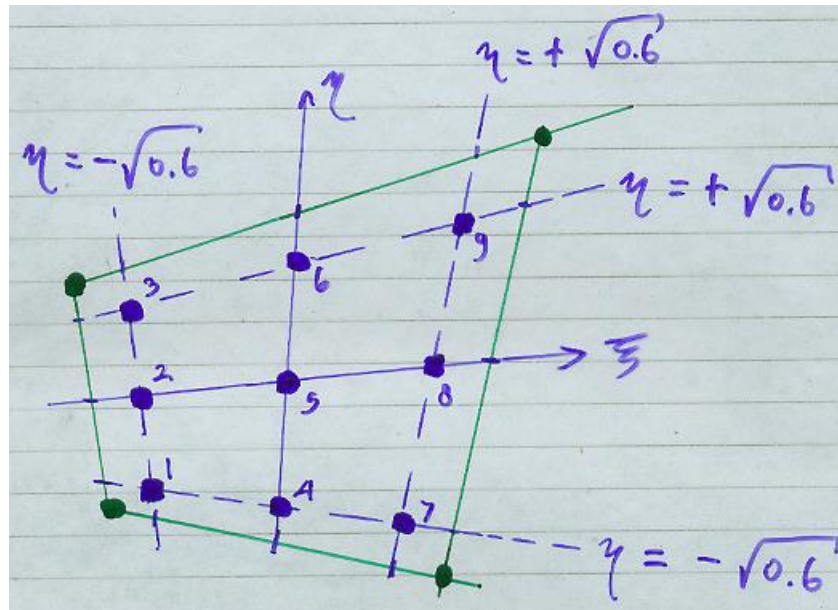 η = + √0.6
η
η = - √0.6
η = + √0.6
9
3
6
ξ
2
5
8
1
4
7
η = - √0.6